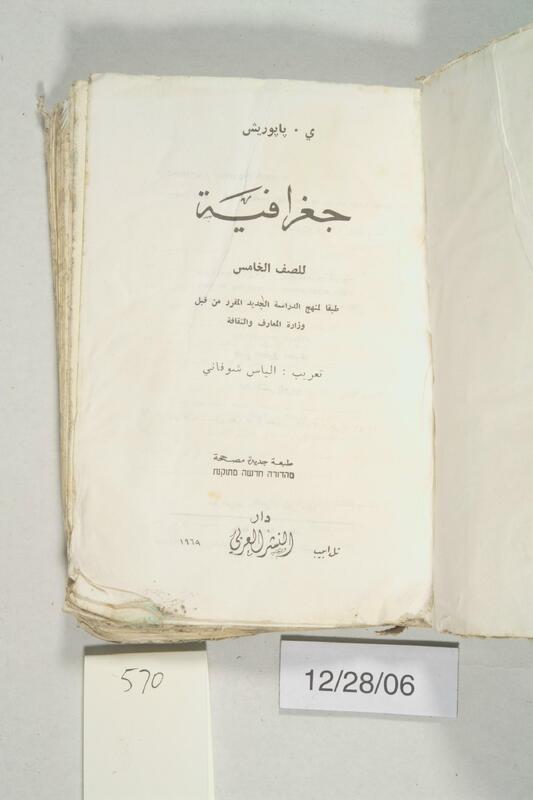 ي . پاپوريش
جغرافية
للصف الخامس
طبقا لمنهج الدراسة الجديد المقرر من قبل
وزارة المعارف والثقافة
تعريب : الياس شوفاني
طبعة جديدة مصححة
מהדורה חדשה מתוקנת
دار
النشر العربي
تل ابيب
١٩٦٥
570
12/28/06